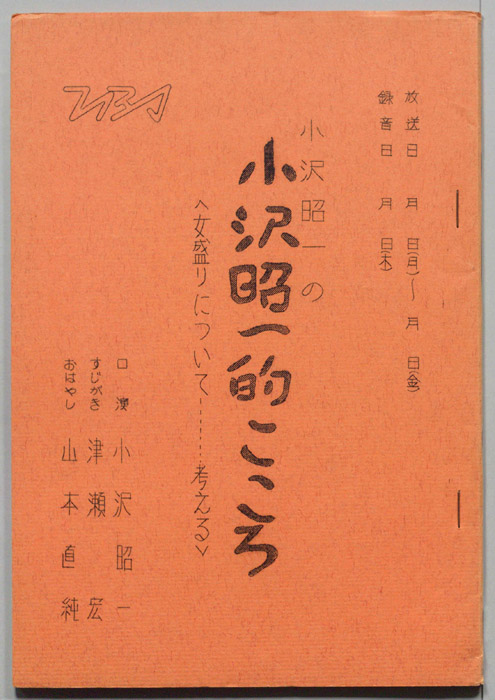 放送日　月　日(月)～　月　日(金)
録音日　月　日(木)
小沢昭一の
小沢昭一的こころ
<女盛りについて………考える>
口演　小沢昭一
すじがき　津瀬宏
おはやし　山本直純
TBS